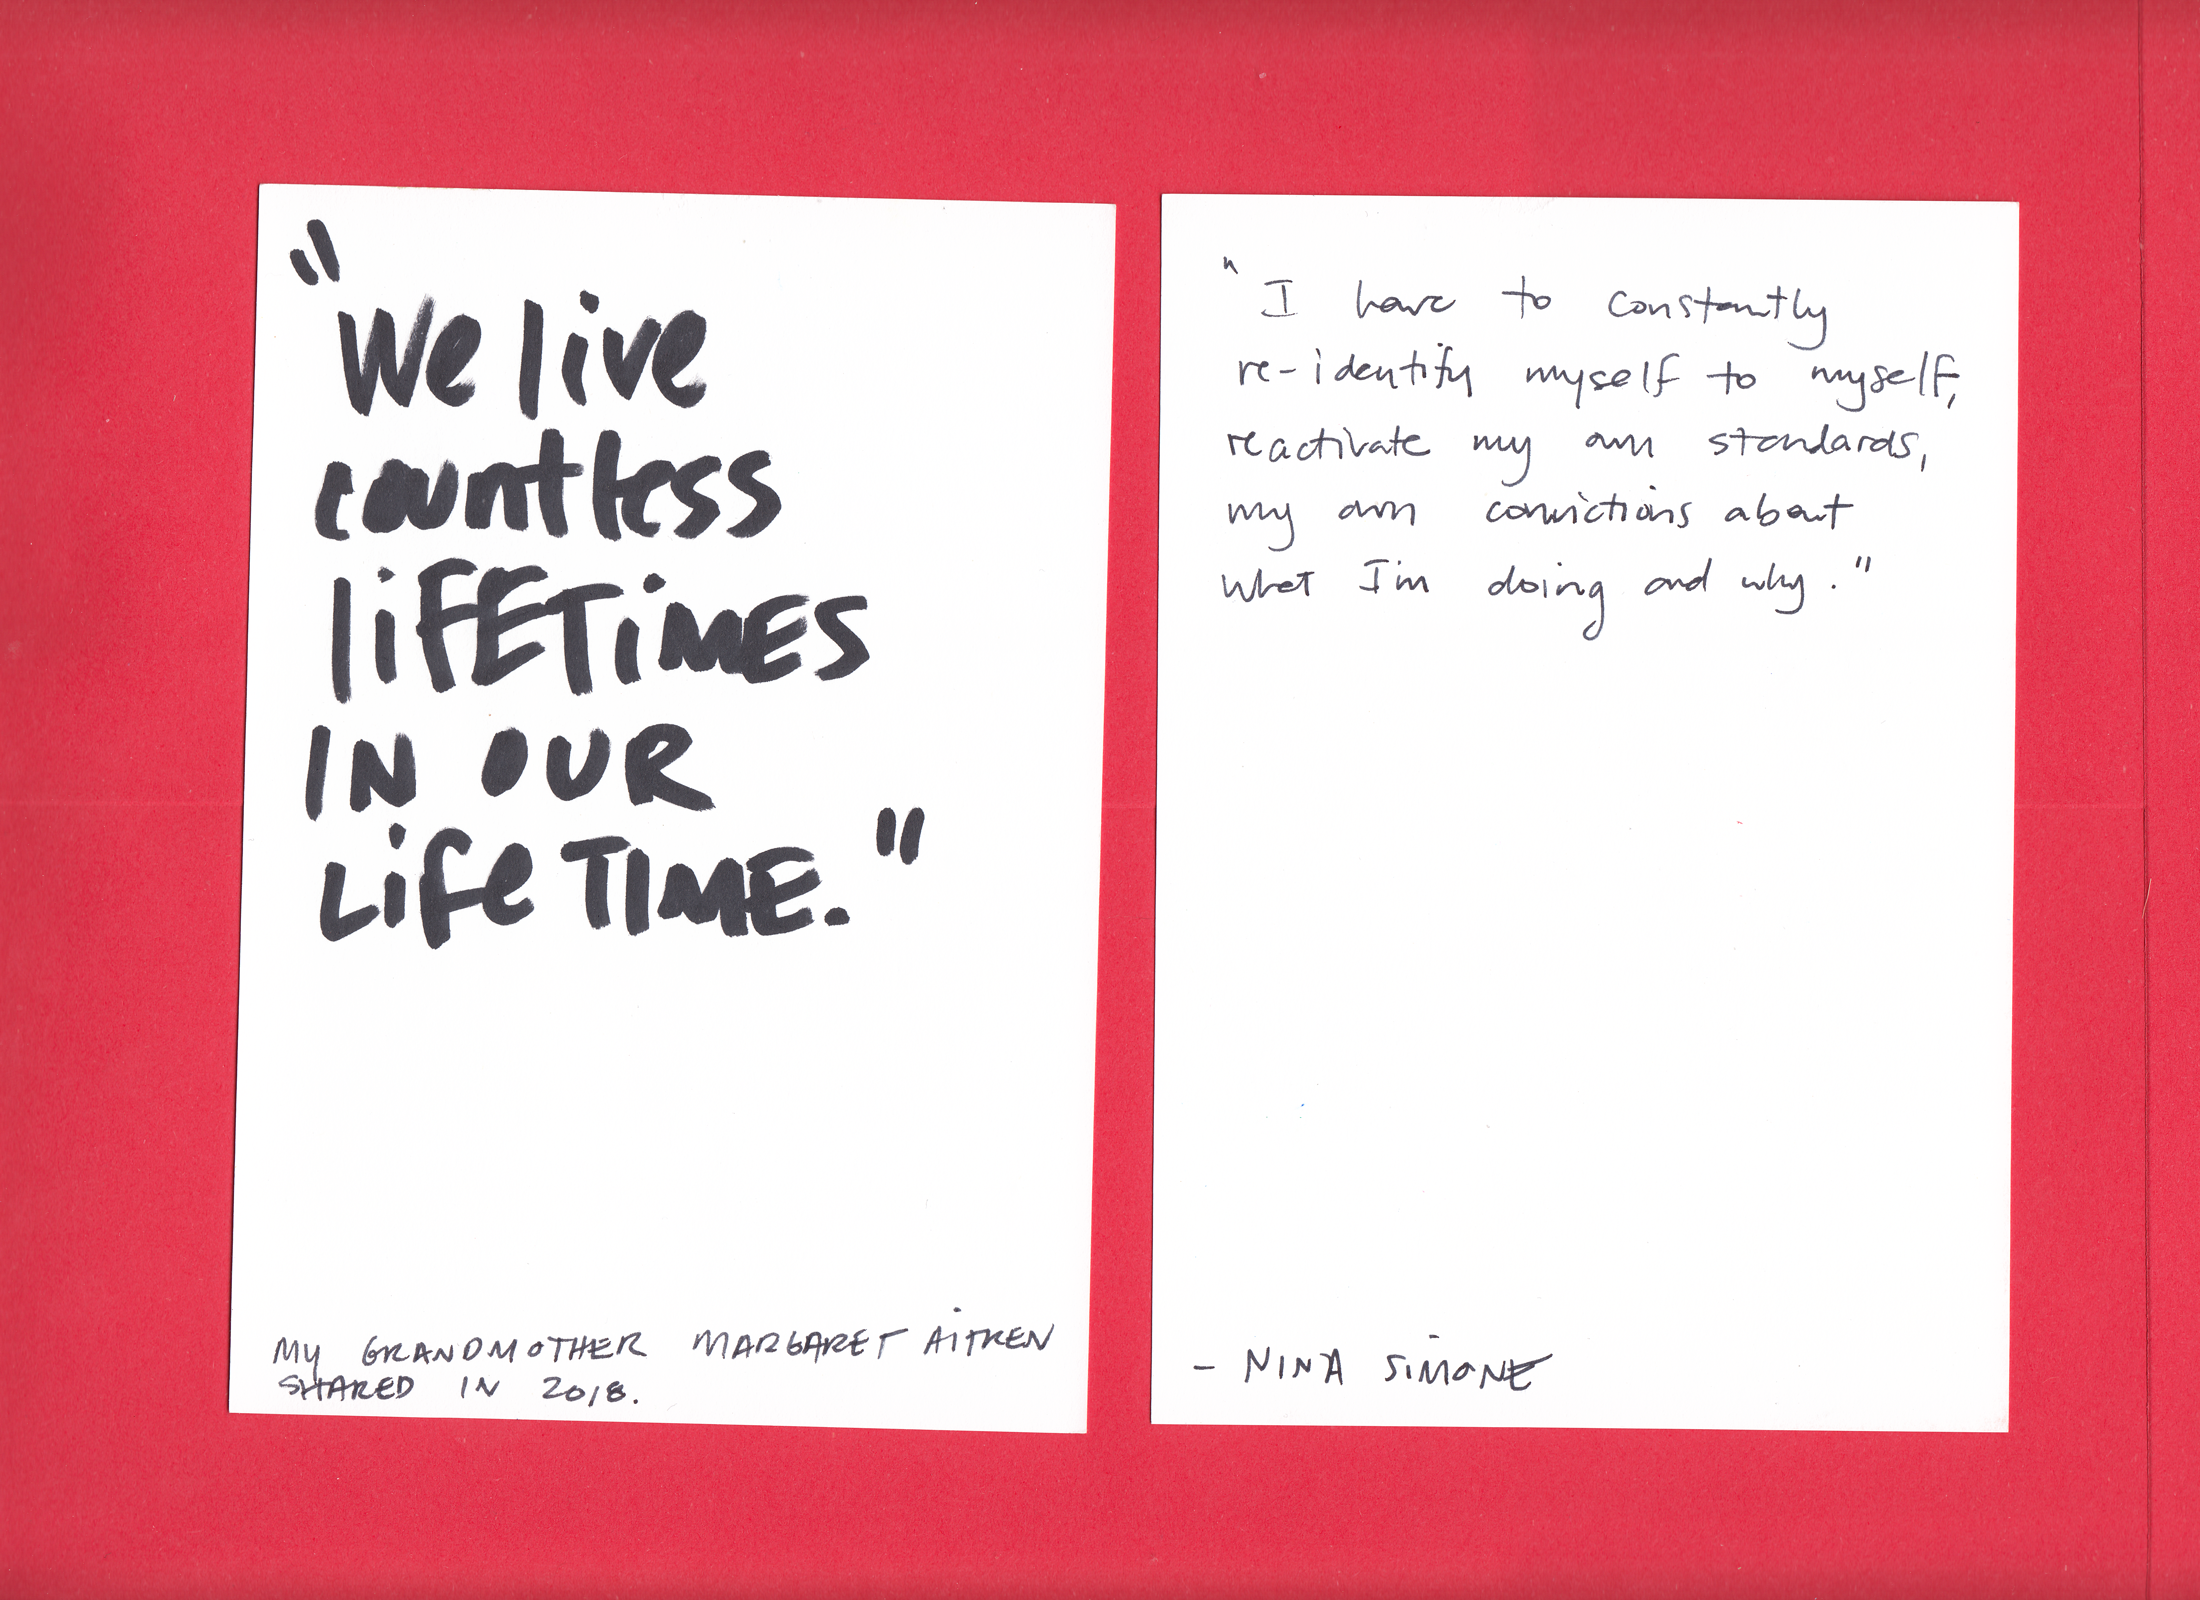 "We live
countless
lifETiMES
IN OUR
Life TIME."
MY GRANDMOTHER MARGARET AiTKEN
SHARED IN 2018.
"I have to constantly
re-identify myself to myself,
reactivate my own standards,
my own convictions about
what I'm doing and why."
- NINA SiMONE